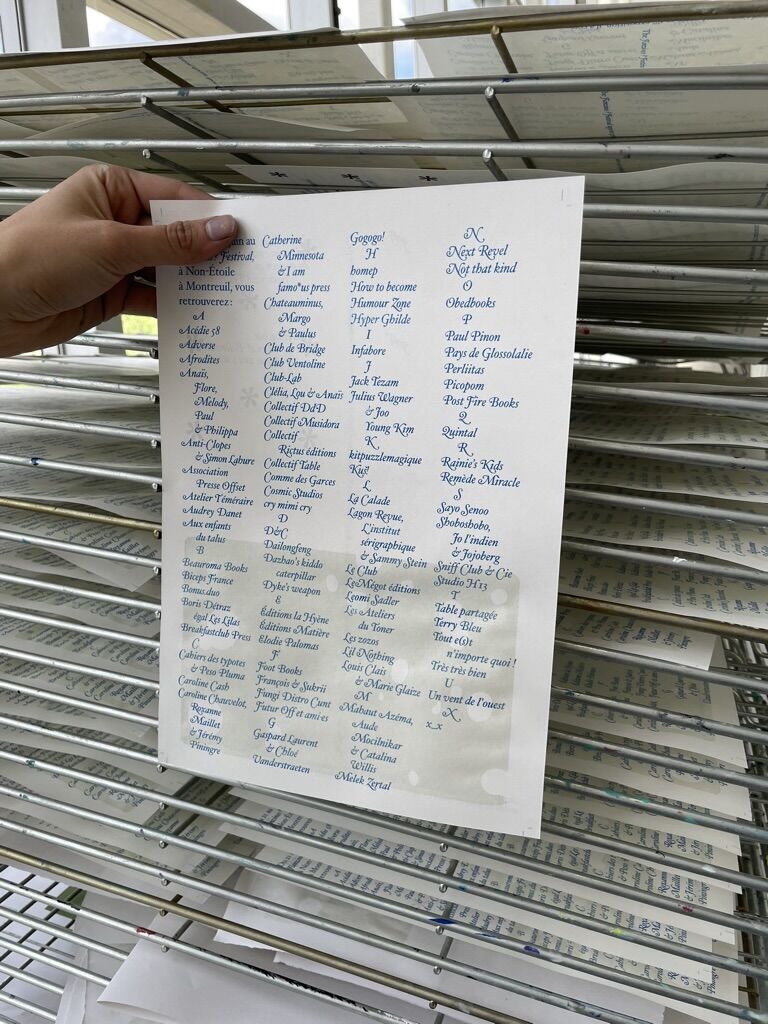 au
Festival,
à Non-Étoile
à Montreuil, vous
retrouverez :
A
Acédie 58
Adverse
Afrodites
Anaïs,
Flore,
Melody,
Paul
& Philippa
Anti-Clopes
& Simon Lahure
Association
Presse Offset
Atelier Téméraire
Audrey Danet
Aux enfants
du talus
B
Beauroma Books
Biceps France
Bonus.duo
Boris Détraz
égal Les Lilas
Breakfastclub Press
C
Cahiers des typotes
& Peso Pluma
Caroline Cash
Caroline Chauvelot,
Roxanne
Maillet
& Jérémy
Piningre
Catherine
Minnesota
& I am
famo*us press
Chateauminus,
Margo
& Paulus
Club de Bridge
Club Ventoline
Club-Lab
Clélia, Lou & Anaïs
Collectif DdD
Collectif Musidora
Collectif
Rictus éditions
Collectif Table
Comme des Garces
Cosmic Studios
cry mimi cry
D
D&C
Dailongfeng
Dazhao's kiddo
caterpillar
Dyke's weapon
E
Éditions la Hyène
Éditions Matière
Elodie Palomas
F
Foot Books
François & Sukrii
Fungi Distro Cunt
Futur Off et ami·es
G
Gaspard Laurent
& Chloé
Vanderstraeten
Gogogo!
H
homep
How to become
Humour Zone
Hyper Ghilde
I
Infabore
J
Jack Tezam
Julius Wagner
& Joo
Young Kim
K
kitpuzzlemagique
Kuš!
L
La Calade
Lagon Revue,
L'institut
sérigraphique
& Sammy Stein
Le Club
Le Mégot éditions
Leomi Sadler
Les Ateliers
du Toner
Les zozos
Lil Nothing
Louis Clais
& Marie Glaize
M
Mahaut Azéma,
Aude
Mocilnikar
& Catalina
Willis
Melek Zertal
N
Next Revel
Not that kind
O
Obedbooks
P
Paul Pinon
Pays de Glossolalie
Perliitas
Picopom
Post Fire Books
Q
Quintal
R
Rainie's Kids
Remède Miracle
S
Sayo Senoo
Shoboshobo,
Jo l'indien
& Jojoberg
Sniff Club & Cie
Studio H13
T
Table partagée
Terry Bleu
Tout e(s)t
n'importe quoi !
Très très bien
U
Un vent de l'ouest
X
x_x